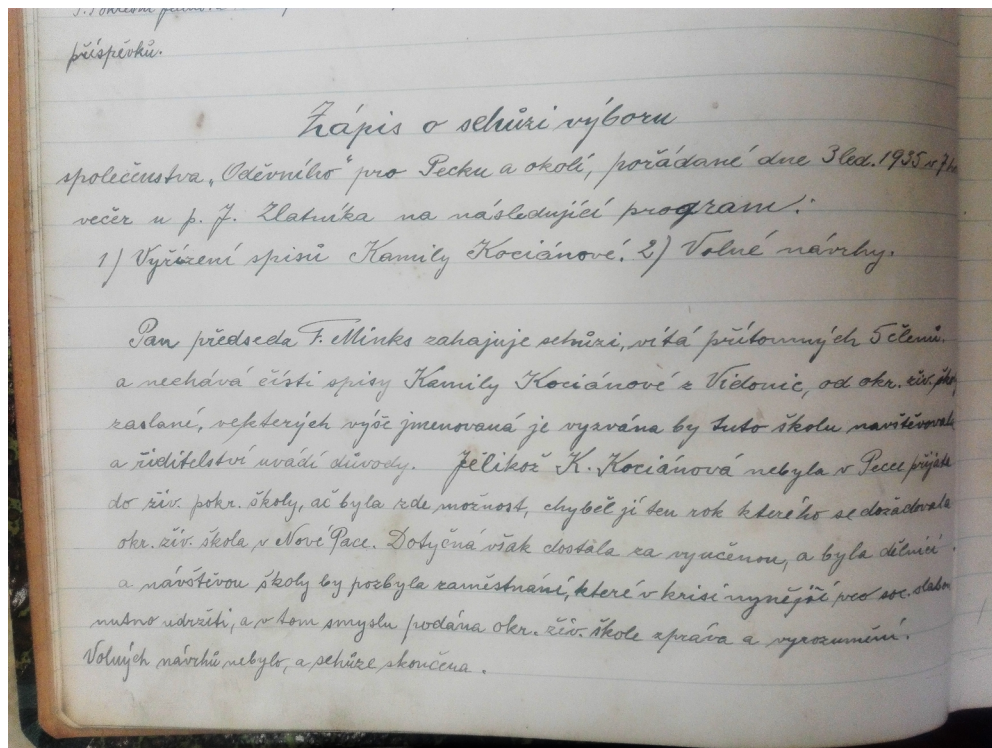 příspěvků.
Zápis o schůzi výboru
společenstva „Oděvního" pro Pecku a okolí, pořádané dne 3 led. 1935 v 7
večer u p. J. Zlatníka na následující program:
1) Vyřízení spisů Kamily Kociánové. 2) Volné návrhy.
Pan předseda F. Minks zahajuje schůzi, vítá přítomných 5 členů.
a nechává čísti spisy Kamily Kociánové z Vidonic, od okr. živ.
zaslané, ve kterých výše jmenovaná je vyzvána by tuto školu navštěvovala
a řiditelství uvádí důvody. Jelikož K. Kociánová nebyla v Pecce přijata
do živ. pokr. školy, ač byla zde možnost, chyběl jí ten rok kterého se dožadovala
okr. živ. škola v Nové Pace. Dotyčná však dostala za vyučenou, a byla dělnicí
a návštěvou školy by pozbyla zaměstnání, které v krisi nynější pro soc. slabou
nutno udržeti, a v tom smyslu podána okr. živ. škole zpráva a vyrozumění.
Volných návrhů nebylo, a schůze skončena.